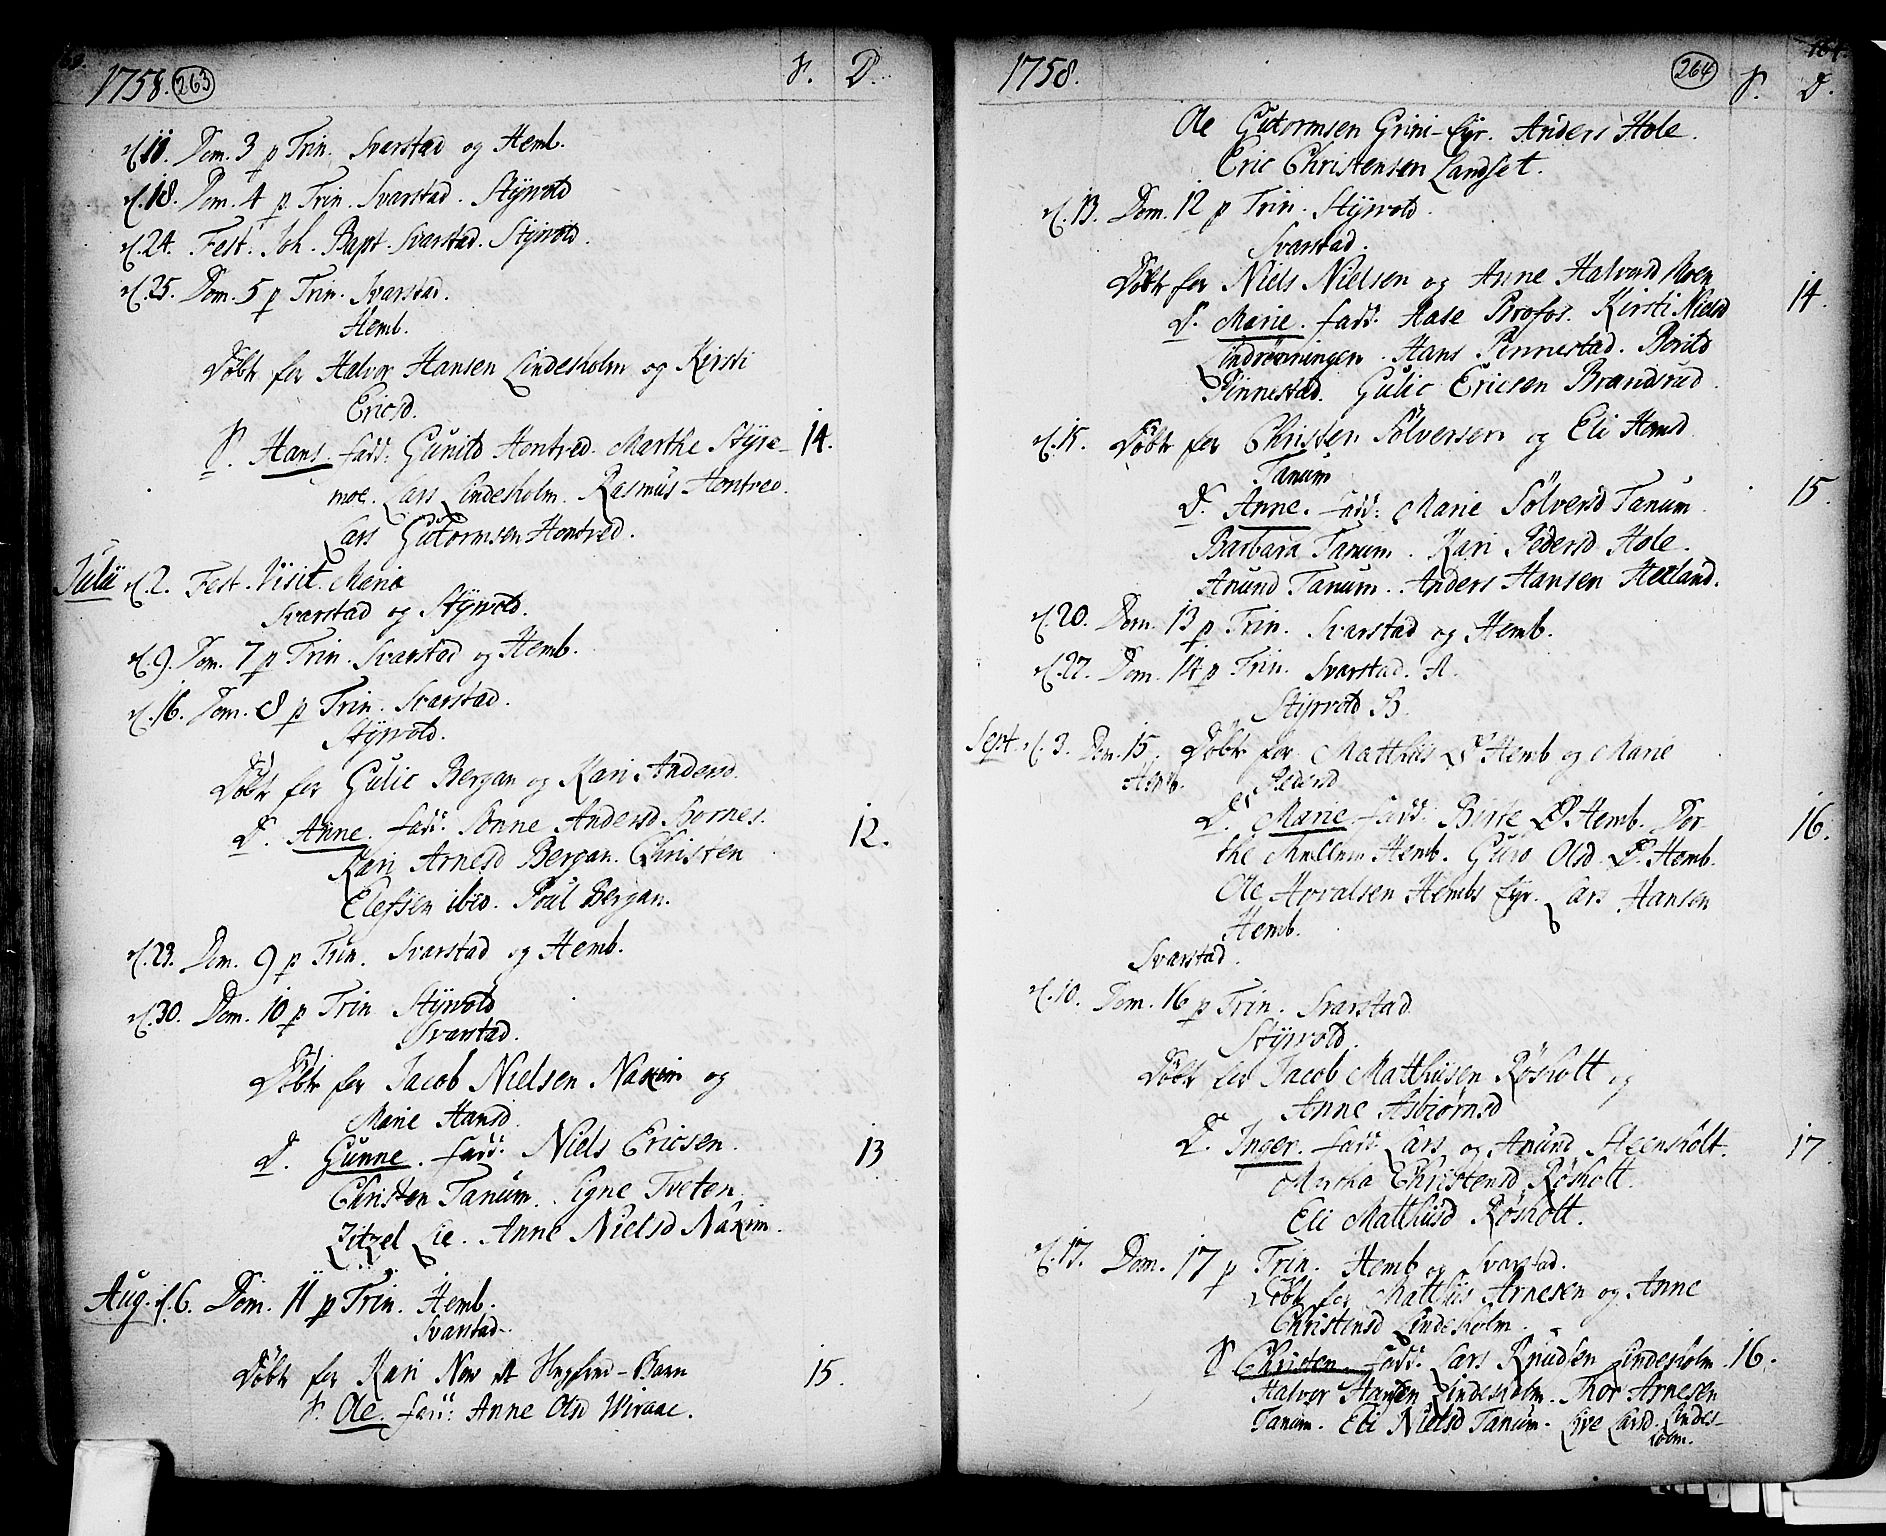 1758. 263 S. D.
d. 11. Dom. 3 p Trin. Svarstad og Hemb.
d. 18. Dom. 4 p Trin. Svarstad. Styrvold
d. 24. Fest. Joh. Bapt. Svarstad. Styrvold.
d. 25. Dom. 5 p Trin. Svarstad.
Hemb.
Døbt for Halvor Hansen Lindesholm og Kirsti
Ericsd.
S. Hans. fadd: Gunild Hontred. Marthe Styr- 14.
moe. Lars Lindesholm. Rasmus Hontred.
Lars Gutormsen Hontred.
Julii d. 2. Fest. Visit. Mariæ
Svarstad og Styrvold.
d. 9. Dom. 7 p Trin. Svarstad og Hemb.
d. 16. Dom. 8 p Trin. Svarstad.
Styrvold.
Døbt for Gulic Bergan og Kari Andersd.
D. Anne. fadd: Sønne Andersd Bornes. 12.
Kari Arnesd Bergan. Christen
Elefsen ibid. Poul Bergan.
d. 23. Dom. 9 p Trin. Svarstad og Hemb.
d. 30. Dom. 10 p Trin Styrvold
Svarstad.
Døbt for Jacob Nielsen Naxim og
Marie Hansd.
D. Gunne. fadd: Niels Ericsen. 13
Christen Tanum. Signe Tveten.
Zitzel Lie. Anne Nielsd Naxim.
Aug. d. 6. Dom. 11 p Trin. Hemb.
Svarstad.
Døbt for Kari Barn 15.
S. Ole. fadd: Anne Olsd Wiraae.
1758. 264 164. S. D.
Ole Gutormsen Grini-Eyr. Anders Hole.
Eric Christensen Landset.
d. 13. Dom. 12 p Trin. Styrvold.
Svarstad.
Døbt for Niels Nielsen og Anne Halvorsd Moen
D. Marie. fadd: Aase Profos. Kirsti Nielsd 14.
Lindrønningen. Hans Pennestad. Borild
Pinnestad. Gulic Ericsen Brandsrud.
d. 15. Døbt for Christen Sølversen og Eli Hansd
Tanum
D. Anne. fadd: Marie Sølversd Tanum 15.
Barbara Tanum. Kari Pedersd Hole.
Anund Tanum. Anders Hansen Hexland.
d. 20. Dom. 13 p Trin. Svarstad og Hemb.
d. 27. Dom. 14 p Trin. Svarstad. A.
Styrvold B.
Sept. d. 3. Dom. 15. Døbt for Matthiis Hemb og Marie
Hemb. Pedersd
D. Marie. fadd: Birte Hemb. Dor- 16.
the Mellum Hemb. Guro Olsd Hemb.
Ole Horalsen Hembs Eyr. Lars Hansen
Hemb.
Svarstad.
d. 10. Dom. 16 p Trin. Svarstad.
Styrvold.
Døbt for Jacob Matthiisen Røsholt og
Anne Asbiørnsd
D. Inger. fadd: Lars og Anund Steensholt. 17.
Martha Christensd Røsholt.
Eli Matthiisd Røsholt.
d. 17. Dom. 17 p Trin. Hemb og Svarstad.
Døbt for Matthiis Arnesen og Anne
Christensd Lindesholm.
S Christen. fadd: Lars Knudsen Lindesholm. 16.
Halvor Hansen Lindesholm. Thor Arnesen
Tanum. Eli Nielsd Tanum. Live Larsd. Lindes-
holm.